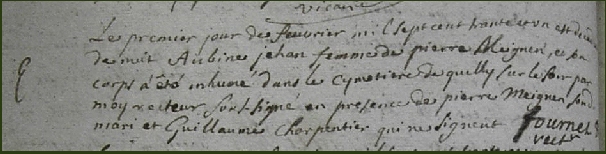 vicaire
Le premier jour de feuvrier mil sept cent trante et un est decedee
de nuit Aubine jehan femme de pierre Meigner, et son
corps a été inhumé dans le cymetiere de quilly sur le soir par
moy recteur soussigné en presence de pierre meigner son
mari et Guillaume Charpentier qui ne signent fournet
rect